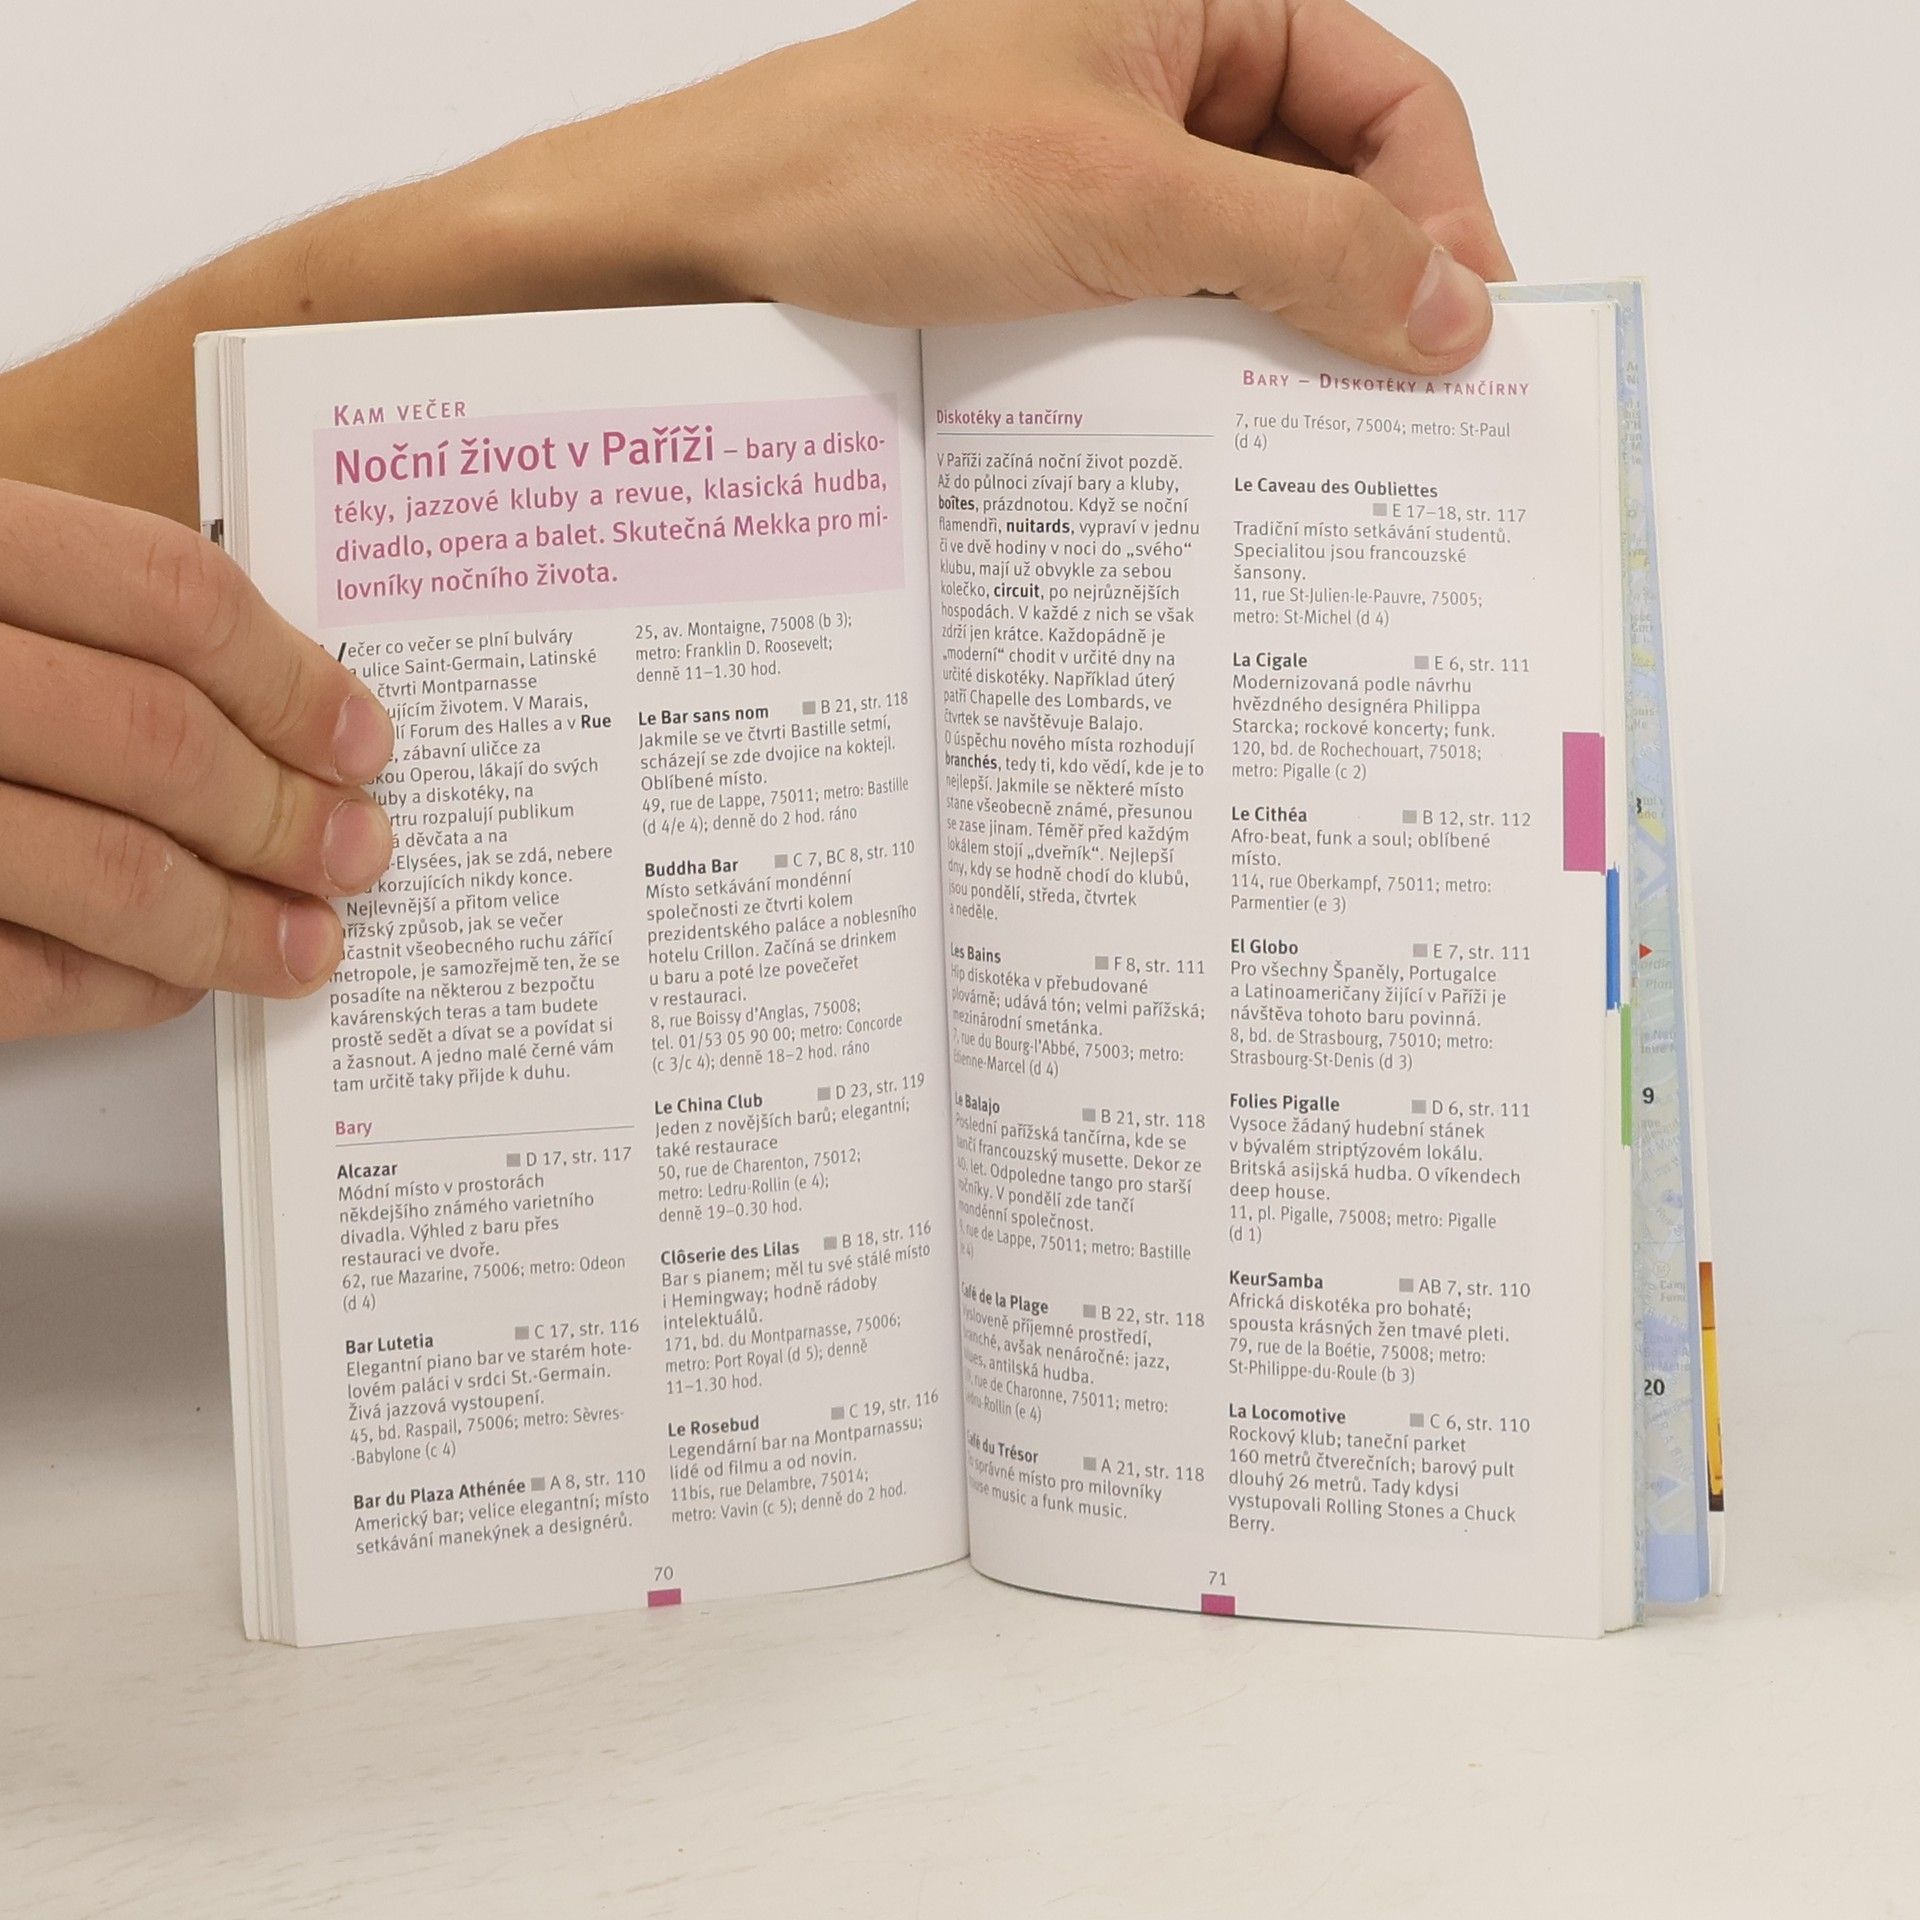 KAM VEČER
Noční život v Paříži – bary a disko-
téky, jazzové kluby a revue, klasická hudba,
divadlo, opera a balet. Skutečná Mekka pro mi-
lovníky nočního života.
ečer co večer se plní bulváry
ulice Saint-Germain, Latinské
čtvrti Montparnasse
životem. V Marais,
Forum des Halles a v Rue
zábavní uličce za
Operou, lákají do svých
a diskotéky, na
rozpalují publikum
děvčata a na
-Elysées, jak se zdá, nebere
korzujících nikdy konce.
Nejlevnější a přitom velice
způsob, jak se večer
všeobecného ruchu zářící
metropole, je samozřejmě ten, že se
posadíte na některou z bezpočtu
kavárenských teras a tam budete
prostě sedět a dívat se a povídat si
a žasnout. A jedno malé černé vám
tam určitě taky přijde k duhu.
Bary
Alcazar D 17, str. 117
Módní místo v prostorách
někdejšího známého varietního
divadla. Výhled z baru přes
restauraci ve dvoře.
62, rue Mazarine, 75006; metro: Odeon
(d 4)
Bar Lutetia C 17, str. 116
Elegantní piano bar ve starém hote-
lovém paláci v srdci St.-Germain.
Živá jazzová vystoupení.
45, bd. Raspail, 75006; metro: Sèvres-
-Babylone (c 4)
Bar du Plaza Athénée A 8, str. 110
Americký bar; velice elegantní; místo
setkávání manekýnek a designérů.
25, av. Montaigne, 75008 (b 3);
metro: Franklin D. Roosevelt;
denně 11–1.30 hod.
Le Bar sans nom B 21, str. 118
Jakmile se ve čtvrti Bastille setmí,
scházejí se zde dvojice na koktejl.
Oblíbené místo.
49, rue de Lappe, 75011; metro: Bastille
(d 4/e 4); denně do 2 hod. ráno
Buddha Bar C 7, BC 8, str. 110
Místo setkávání mondénní
společnosti ze čtvrti kolem
prezidentského paláce a noblesního
hotelu Crillon. Začíná se drinkem
u baru a poté lze povečeřet
v restauraci.
8, rue Boissy d'Anglas, 75008;
tel. 01/53 05 90 00; metro: Concorde
(c 3/c 4); denně 18–2 hod. ráno
Le China Club D 23, str. 119
Jeden z novějších barů; elegantní;
také restaurace
50, rue de Charenton, 75012;
metro: Ledru-Rollin (e 4);
denně 19–0.30 hod.
Clôserie des Lilas B 18, str. 116
Bar s pianem; měl tu své stálé místo
i Hemingway; hodně rádoby
intelektuálů.
171, bd. du Montparnasse, 75006;
metro: Port Royal (d 5); denně
11–1.30 hod.
Le Rosebud C 19, str. 116
Legendární bar na Montparnassu;
lidé od filmu a od novin.
11bis, rue Delambre, 75014;
metro: Vavin (c 5); denně do 2 hod.
70
BARY – DISKOTÉKY A TANČÍRNY
Diskotéky a tančírny
V Paříži začíná noční život pozdě.
Až do půlnoci zívají bary a kluby,
boîtes, prázdnotou. Když se noční
flamendři, nuitards, vypraví v jednu
či ve dvě hodiny v noci do „svého“
klubu, mají už obvykle za sebou
kolečko, circuit, po nejrůznějších
hospodách. V každé z nich se však
zdrží jen krátce. Každopádně je
„moderní“ chodit v určité dny na
určité diskotéky. Například úterý
patří Chapelle des Lombards, ve
čtvrtek se navštěvuje Balajo.
O úspěchu nového místa rozhodují
branchés, tedy ti, kdo vědí, kde je to
nejlepší. Jakmile se některé místo
stane všeobecně známé, přesunou
se zase jinam. Téměř před každým
lokálem stojí „dveřník“. Nejlepší
dny, kdy se hodně chodí do klubů,
jsou pondělí, středa, čtvrtek
a neděle.
Les Bains F 8, str. 111
Hip diskotéka v přebudované
plovárně; udává tón; velmi pařížská;
mezinárodní smetánka.
7, rue du Bourg-l'Abbé, 75003; metro:
Étienne-Marcel (d 4)
Le Balajo B 21, str. 118
Poslední pařížská tančírna, kde se
tančí francouzský musette. Dekor ze
40. let. Odpoledne tango pro starší
ročníky. V pondělí zde tančí
mondénní společnost.
rue de Lappe, 75011; metro: Bastille
Café de la Plage B 22, str. 118
příjemné prostředí,
branché, avšak nenáročné: jazz,
antilská hudba.
rue de Charonne, 75011; metro:
Ledru-Rollin (e 4)
Café du Trésor A 21, str. 118
správné místo pro milovníky
house music a funk music.
7, rue du Trésor, 75004; metro: St-Paul
(d 4)
Le Caveau des Oubliettes
E 17–18, str. 117
Tradiční místo setkávání studentů.
Specialitou jsou francouzské
šansony.
11, rue St-Julien-le-Pauvre, 75005;
metro: St-Michel (d 4)
La Cigale E 6, str. 111
Modernizovaná podle návrhu
hvězdného designéra Philippa
Starcka; rockové koncerty; funk.
120, bd. de Rochechouart, 75018;
metro: Pigalle (c 2)
Le Cithéa B 12, str. 112
Afro-beat, funk a soul; oblíbené
místo.
114, rue Oberkampf, 75011; metro:
Parmentier (e 3)
El Globo E 7, str. 111
Pro všechny Španěly, Portugalce
a Latinoameričany žijící v Paříži je
návštěva tohoto baru povinná.
8, bd. de Strasbourg, 75010; metro:
Strasbourg-St-Denis (d 3)
Folies Pigalle D 6, str. 111
Vysoce žádaný hudební stánek
v bývalém striptýzovém lokálu.
Britská asijská hudba. O víkendech
deep house.
11, pl. Pigalle, 75008; metro: Pigalle
(d 1)
KeurSamba AB 7, str. 110
Africká diskotéka pro bohaté;
spousta krásných žen tmavé pleti.
79, rue de la Boétie, 75008; metro:
St-Philippe-du-Roule (b 3)
La Locomotive C 6, str. 110
Rockový klub; taneční parket
160 metrů čtverečních; barový pult
dlouhý 26 metrů. Tady kdysi
vystupovali Rolling Stones a Chuck
Berry.
71
9
20